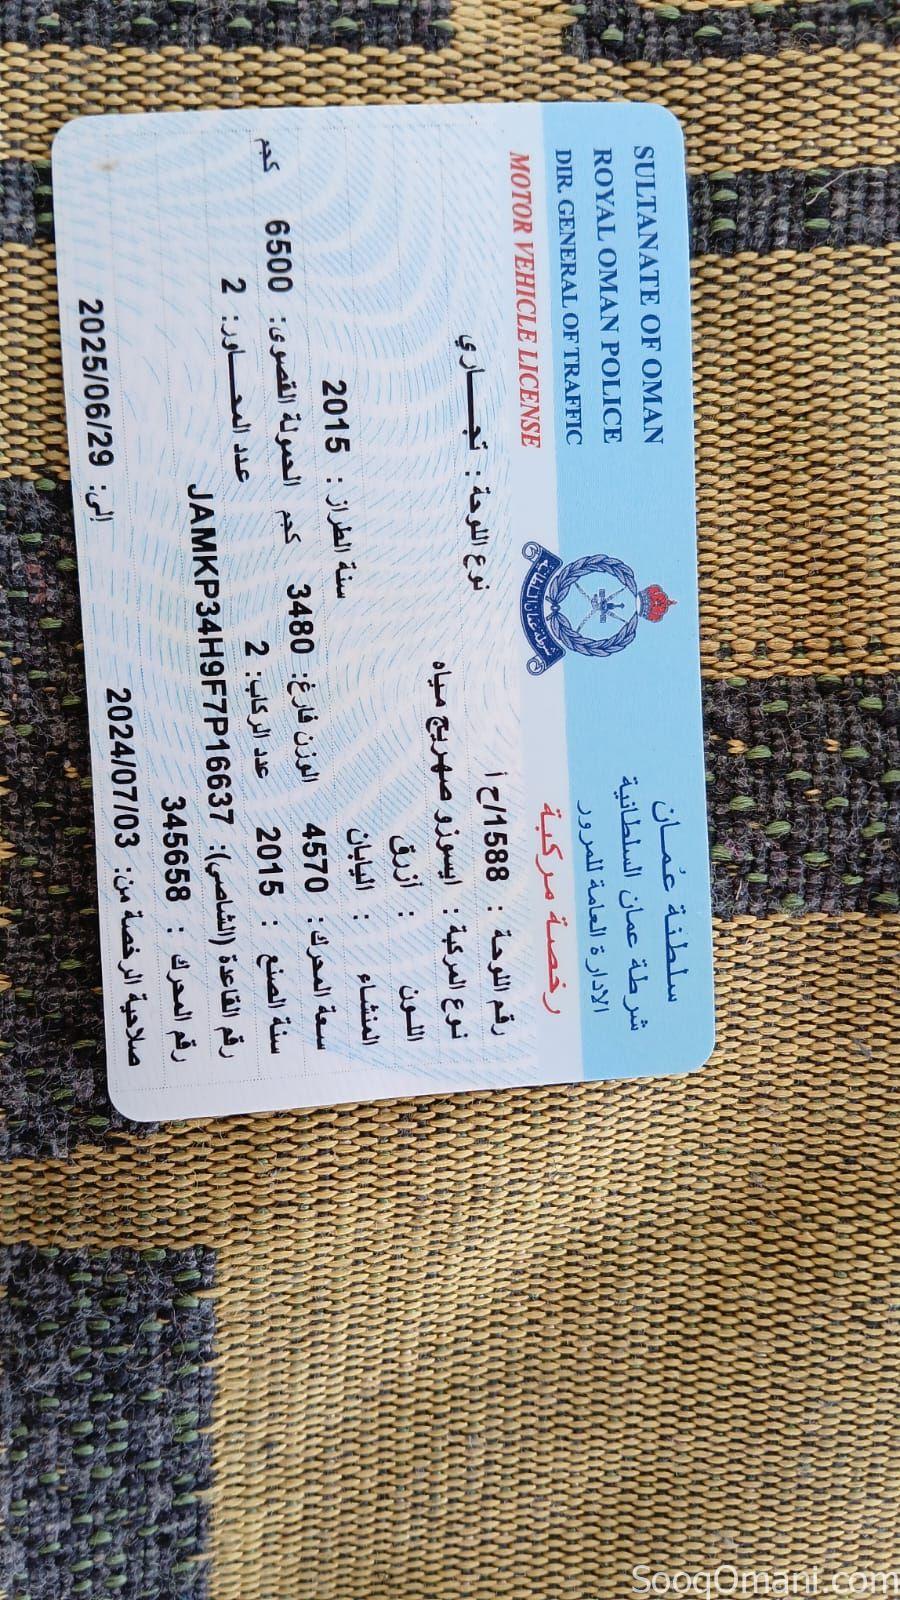 SULTANATE OF OMAN
ROYAL OMAN POLICE
DIR. GENERAL OF TRAFFIC
MOTOR VEHICLE LICENSE
سلطنة عُمـان
شرطة عمان السلطانية
الادارة العامة للمرور
رخصة مركبة
شرطة عمان السلطانية
رقم اللوحة : 1588/ح أ نوع اللوحة : تجـــاري
نوع المركبة : ايسوزو صهريج مياه
اللـــون : أزرق
المنشاء : اليابان سنة الطراز : 2015
سعة المحرك: 4570 الوزن فارغ: 3480 كجم الحمولة القصوى: 6500 كجم
سنة الصنع : 2015 عدد الركاب: 2 عدد المحـــاور: 2
رقم القاعدة (الشاصي): JAMKP34H9F7P16637
رقم المحرك : 345658
صلاحية الرخصة من: 2024/07/03 إلى: 2025/06/29
SooqOmani.com